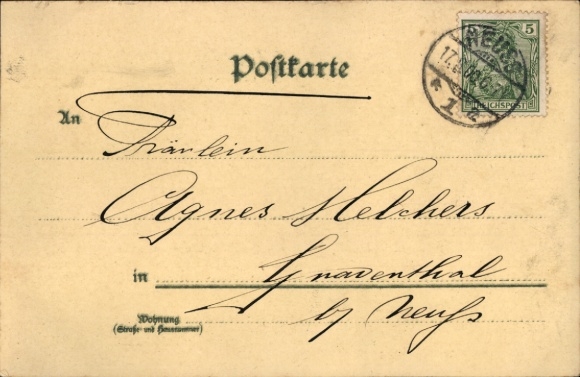 5
REICHSPOST
NEUSS
17.
* 1
Postkarte
An
Fräulein
Agnes Melchers
in Gnadenthal
by Neuss
Wohnung
(Straße und Hausnummer)